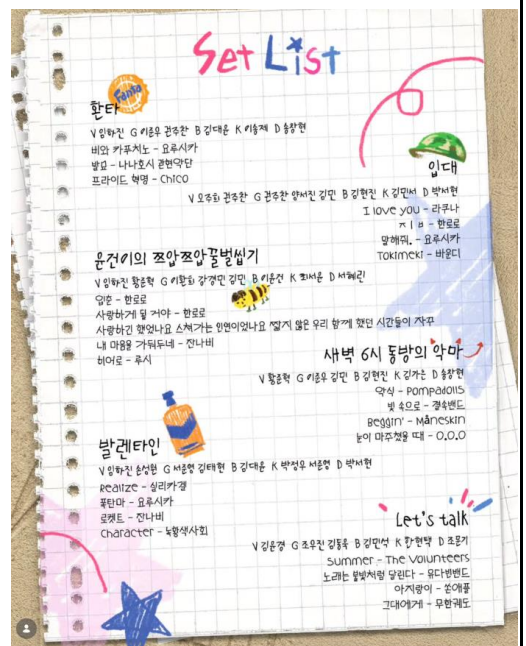 Set List
환타
Fanta
V 임하진 G 이준우 권주찬 B 김대윤 K 이승제 D 송창현
비와 카푸치노 - 요루시카
발묘 - 나나호시 관현악단
프라이드 혁명 - CHiCO
입대
V 오주희 권주찬 G 권주찬 양서진 김민 B 김현진 K 김민서 D 박서현
I love you - 라쿠나
ㅈㅣㅂ - 한로로
말해줘. - 요루시카
Tokimeki - 바운디
윤건이의 쪼압쪼압꿀벌씹기
V 임하진 황준혁 G 이환희 강경민 김민 B 이윤건 K 최서윤 D 서혜린
입춘 - 한로로
사랑하게 될 거야 - 한로로
사랑하긴 했었나요 스쳐가는 인연이었나요 짧지 않은 우리 함께 했던 시간들이 자꾸
내 마음을 가둬두네 - 잔나비
히어로 - 루시
새벽 6시 동방의 악마
V 황준혁 G 이준우 김민 B 김현진 K 김가은 D 송창현
악식 - Pompadolls
빛 속으로 - 결속밴드
Beggin' - Måneskin
눈이 마주쳤을 때 - O.O.O
발렌타인
V 임하진 손성원 G 서준영 김태현 B 김대윤 K 박정우 서준영 D 박서현
Realize - 실리카겔
폭탄마 - 요루시카
로켓트 - 잔나비
Character - 녹황색사회
Let's talk
V 김윤경 G 조우진 김동욱 B 김민석 K 한현택 D 조문기
Summer - The Volunteers
노래는 별빛처럼 달린다 - 유다빈밴드
아지랑이 - 쏜애플
그대에게 - 무한궤도